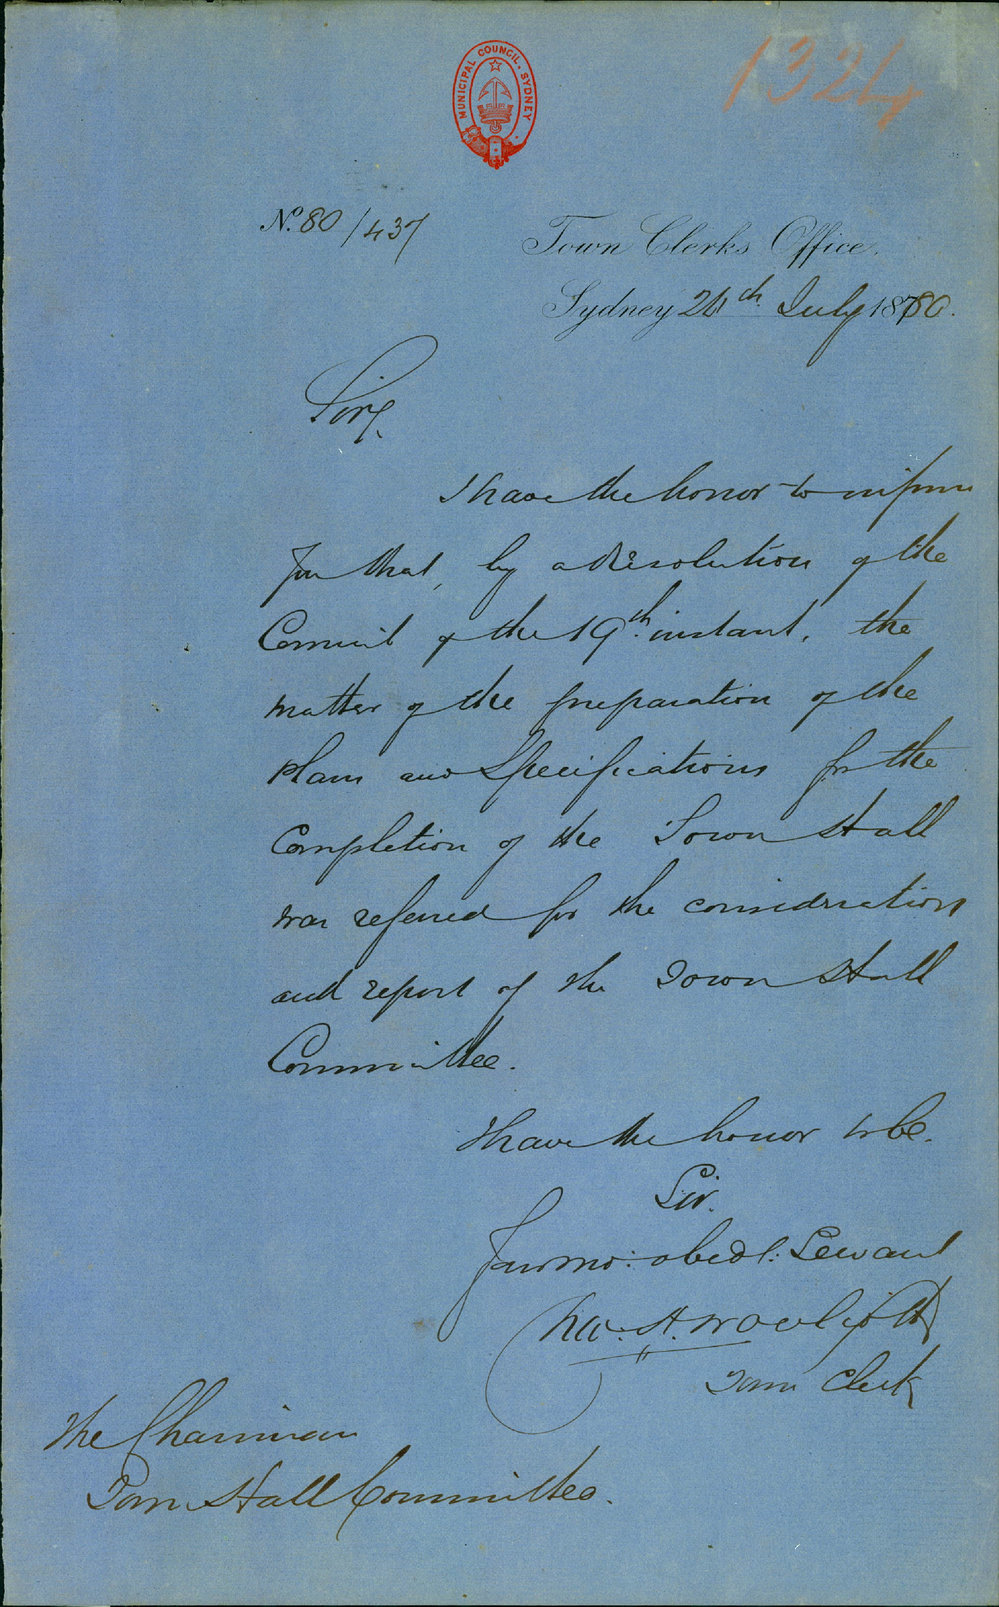 1324
MUNICIPAL COUNCIL. SYDNEY
No. 80/437
Town Clerks Office.
Sydney 24th July 1880.
Sir,
I have the honor to inform
you that, by a Resolution of the
Council of the 19th instant, the
matter of the preparation of the
plans and Specifications for the
Completion of the Town Hall
was referred for the consideration
and report of the Town Hall
Committee.
I have the honor to be.
Sir.
Your mo: obedt: Servant
Chas. H. Woolcott
Town Clerk
The Chairman
Town Hall Committee.